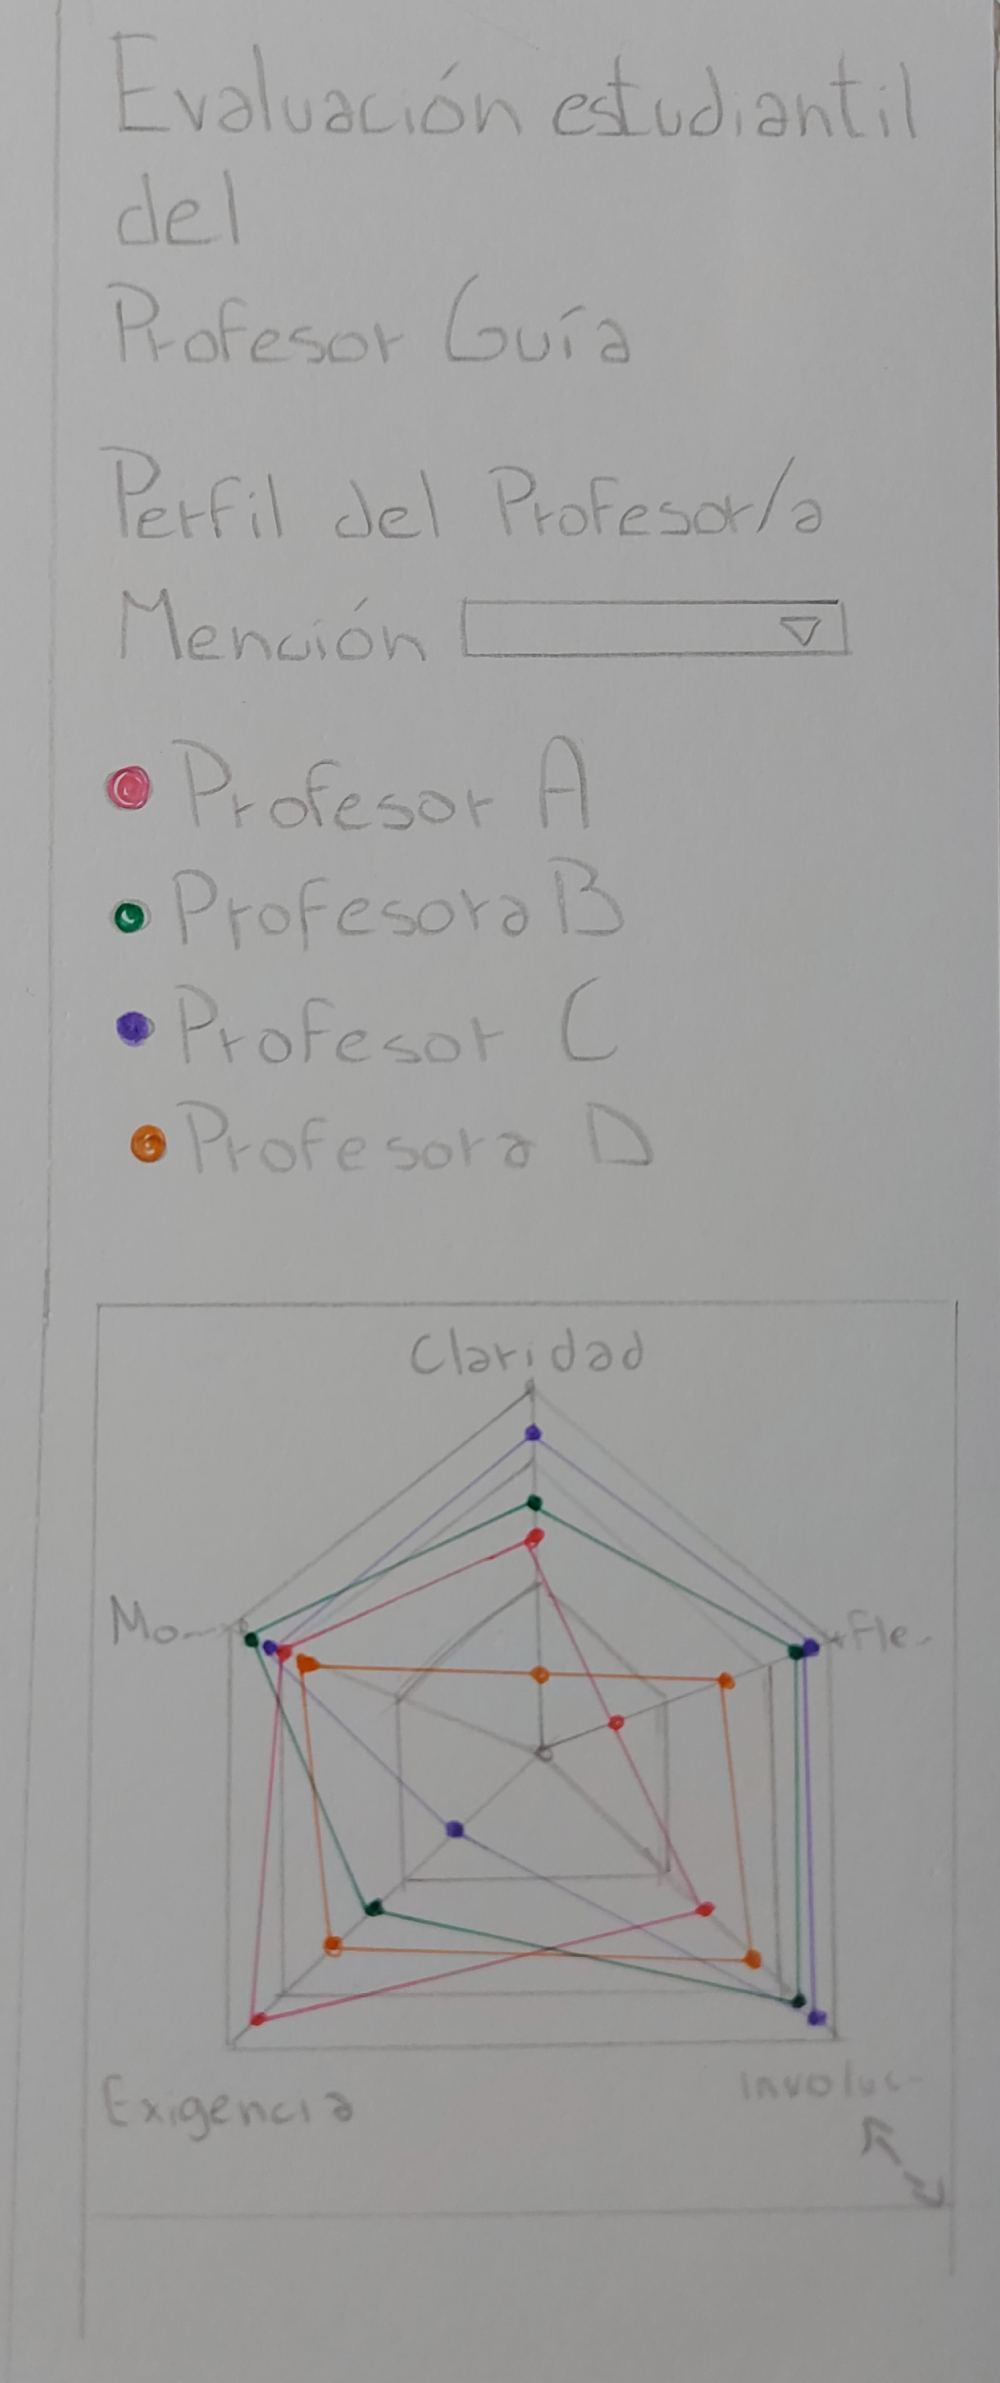 Evaluación estudiantil
del
Profesor Guía
Perfil del Profesor/a
Mención
Profesor A
Profesora B
Profesor C
Profesora D
Claridad
Mo-
Fle-
Exigencia
Involuc-